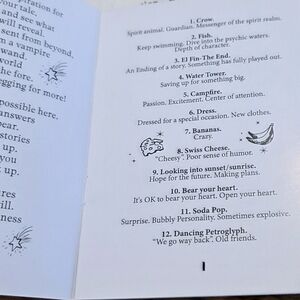 piration for
your tale.
and see what
will reveal.
sent from beyond.
m a vampire
want
world
the fore.
egging for more!
possible here.
answers
pear.
stories
up.
you
k up.
ures
vill.
ness
1. Crow.
Spirit animal. Guardian. Messenger of the spirit realm.
2. Fish.
Keep swimming. Dive into the psychic waters.
Depth of character.
3. El Fin-The End.
An Ending of a story. Something has fully played out.
4. Water Tower.
Saving up for something big.
5. Campfire.
Passion. Excitement. Center of attention.
6. Dress.
Dressed for a special occasion. New clothes.
7. Bananas.
Crazy.
8. Swiss Cheese.
"Cheesy". Poor sense of humor.
9. Looking into sunset/sunrise.
Hope for the future. Making plans.
10. Bear your heart.
It's OK to bear your heart. Open your heart.
11. Soda Pop.
Surprise. Bubbly Personality. Sometimes explosive.
12. Dancing Petroglyph.
"We go way back". Old friends.